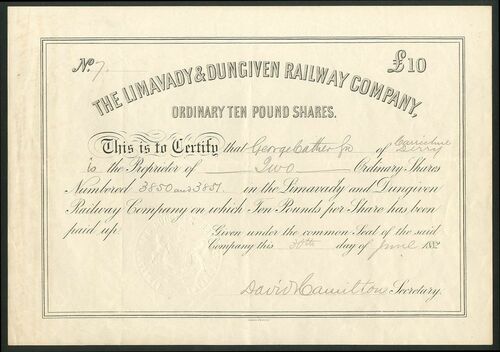 No. 7.
£10
THE LIMAVADY & DUNGIVEN RAILWAY COMPANY,
ORDINARY TEN POUND SHARES.
This is to Certify that George Cather Jn of Carrichue
Derry
is the Proprietor of Two Ordinary Shares
Numbered 3850 and 3851 in the Limavady and Dungiven
Railway Company on which Ten Pounds per Share has been
paid up.
Given under the common Seal of the said
Company this 30th day of June 1882
David Hamilton Secretary.